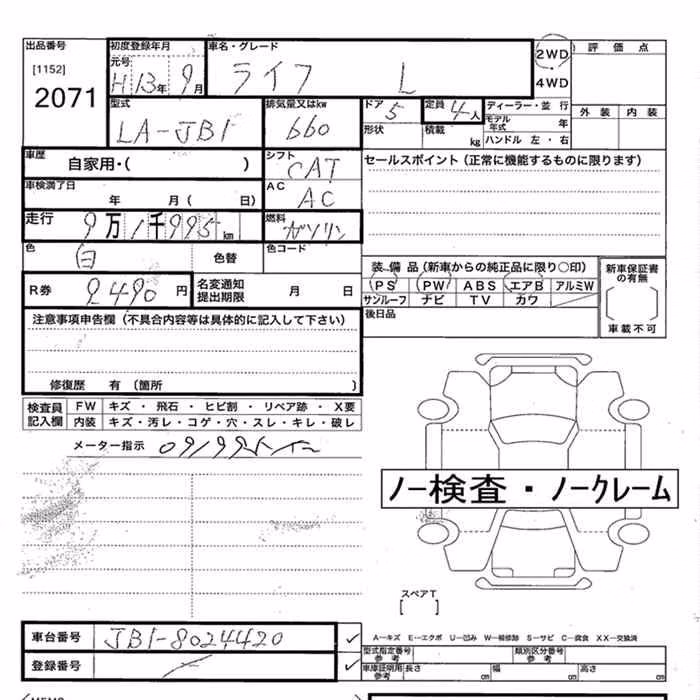 出品番号 初度登録年月 車名・グレード 2WD 評価点
[1152] 元号 H13年9月 ライフ L 4WD
2071 型式 排気量又はkw ドア 定員 ディーラー・並行 外装 内装
LA-JB1 660 5 4人 モデル年式 年
形状 積載 kg ハンドル 左・右
車歴 自家用・( ) シフト CAT セールスポイント(正常に機能するものに限ります)
車検満了日 年 月( 日) AC AC
走行 9万1千995km 燃料 ガソリン
色 白 色替 色コード 装備品(新車からの純正品に限り○印) 新車保証書の有無
R券 9490円 名変通知提出期限 月 日 PS PW ABS エアB アルミW
サンルーフ ナビ TV カワ
注意事項申告欄(不具合内容等は具体的に記入して下さい) 後日品 車載不可
修復歴 有(箇所 )
検査員 FW キズ・飛石・ヒビ割・リペア跡・X要
記入欄 内装 キズ・汚レ・コゲ・穴・スレ・キレ・破レ
メーター指示
ノー検査・ノークレーム
スペアT
[ ]
車台番号 JB1-8024420 A-キズ E-エクボ U-凹み W-補修跡 S-サビ C-腐食 XX-交換済
登録番号 型式指定番号 参考 類別区分番号 参考
車庫証明用参考 長さ cm 幅 cm 高さ cm
MEMO